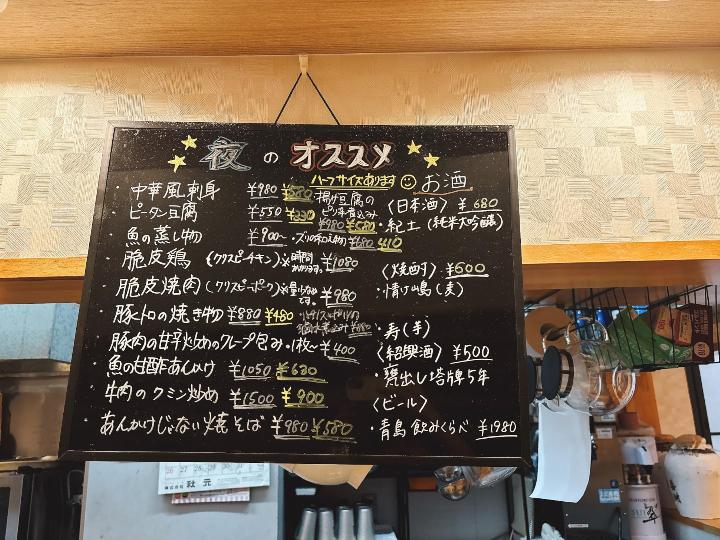 夜のオススメ
ハーフサイズあります
・中華風刺身 ¥980 ¥580
・ピータン豆腐 ¥550 ¥330
・魚の蒸し物 ¥900~
・脆皮鶏 (クリスピーチキン) ※時間かかります。 ¥1080
・脆皮焼肉 (クリスピーポーク) ※量少なめです。 ¥980
・豚トロの焼き物 ¥880 ¥480
・豚肉の甘辛炒めのクレープ包み・1枚~ ¥400
・魚の甘酢あんかけ ¥1050 ¥630
・牛肉のクミン炒め ¥1500 ¥900
・あんかけじゃない焼そば ¥980 ¥580
揚げ豆腐の
ピリ辛煮込み
¥980 ¥580
・ズリの和え物 ¥680 410
お酒
〈日本酒〉 ¥680
・紀土 (純米大吟醸)
〈焼酎〉 ¥600
・情け嶋 (麦)
・寿 (芋)
〈紹興酒〉 ¥500
・甕出し塔牌5年
〈ビール〉
・青島 飲みくらべ ¥1980
26 27 28 29 30
株式会社 社元